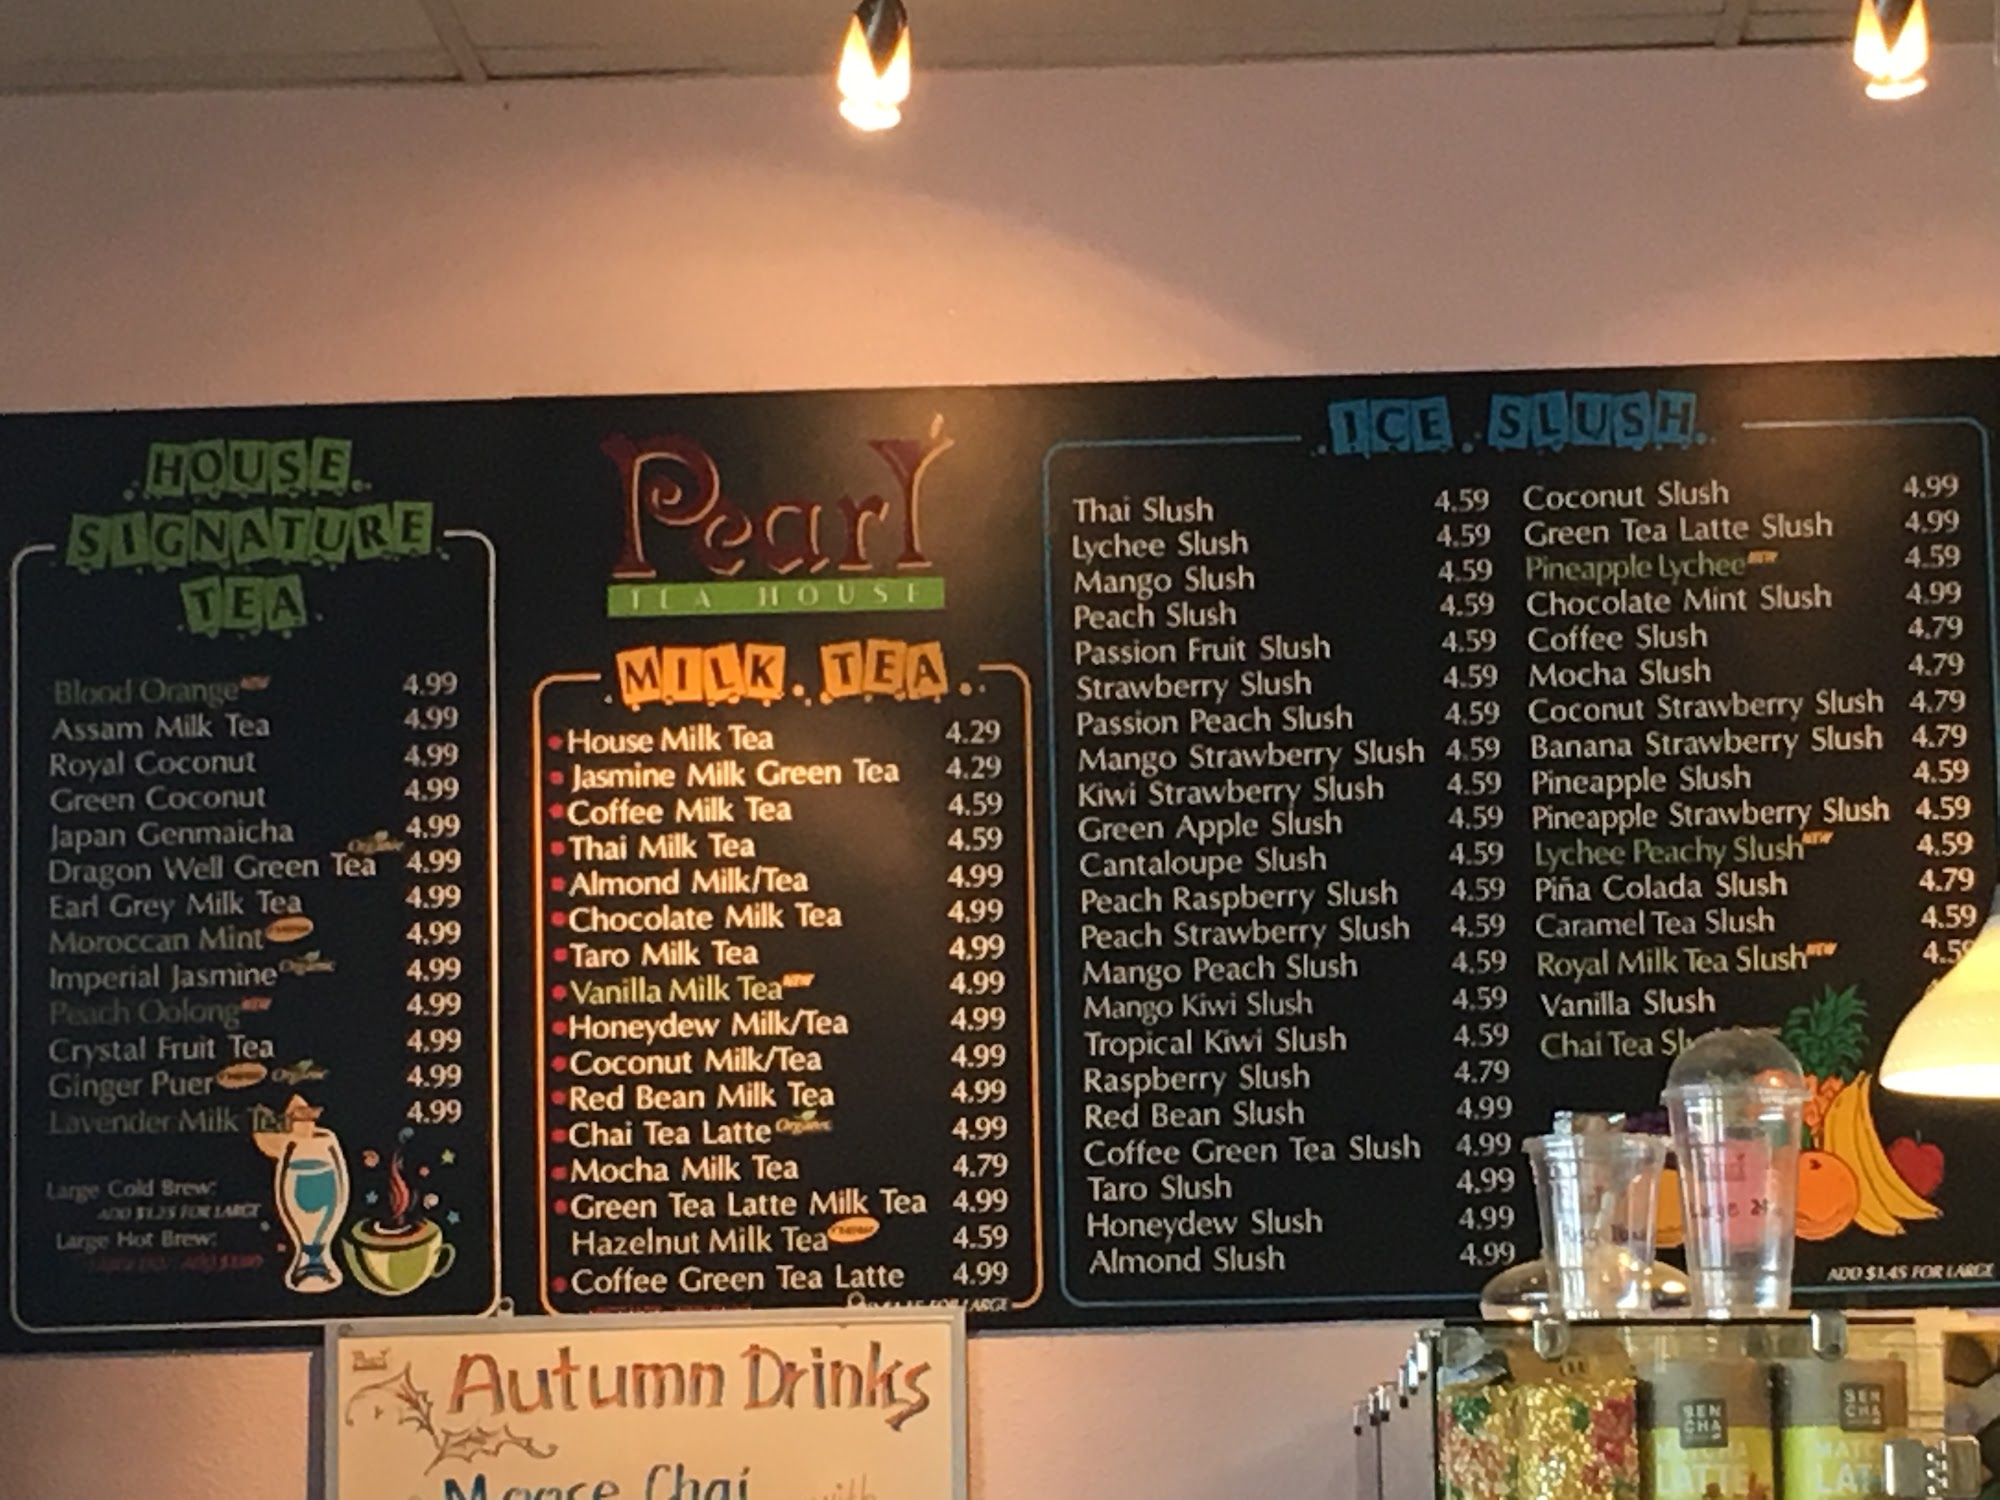 HOUSE
SIGNATURE
TEA
Blood Orange NEW 4.99
Assam Milk Tea 4.99
Royal Coconut 4.99
Green Coconut 4.99
Japan Genmaicha 4.99
Dragon Well Green Tea Organic 4.99
Earl Grey Milk Tea 4.99
Moroccan Mint 4.99
Imperial Jasmine Organic 4.99
Peach Oolong NEW 4.99
Crystal Fruit Tea 4.99
Ginger Puer Organic 4.99
Lavender Milk Tea 4.99
Large Cold Brew:
ADD $1.25 FOR LARGE
Large Hot Brew:
Pearl
TEA HOUSE
MILK TEA
House Milk Tea 4.29
Jasmine Milk Green Tea 4.29
Coffee Milk Tea 4.59
Thai Milk Tea 4.59
Almond Milk/Tea 4.99
Chocolate Milk Tea 4.99
Taro Milk Tea 4.99
Vanilla Milk Tea NEW 4.99
Honeydew Milk/Tea 4.99
Coconut Milk/Tea 4.99
Red Bean Milk Tea 4.99
Chai Tea Latte Organic 4.99
Mocha Milk Tea 4.79
Green Tea Latte Milk Tea 4.99
Hazelnut Milk Tea 4.59
Coffee Green Tea Latte 4.99
FOR LARGE
ICE SLUSH
Thai Slush 4.59
Lychee Slush 4.59
Mango Slush 4.59
Peach Slush 4.59
Passion Fruit Slush 4.59
Strawberry Slush 4.59
Passion Peach Slush 4.59
Mango Strawberry Slush 4.59
Kiwi Strawberry Slush 4.59
Green Apple Slush 4.59
Cantaloupe Slush 4.59
Peach Raspberry Slush 4.59
Peach Strawberry Slush 4.59
Mango Peach Slush 4.59
Mango Kiwi Slush 4.59
Tropical Kiwi Slush 4.59
Raspberry Slush 4.79
Red Bean Slush 4.99
Coffee Green Tea Slush 4.99
Taro Slush 4.99
Honeydew Slush 4.99
Almond Slush 4.99
Coconut Slush 4.99
Green Tea Latte Slush 4.99
Pineapple Lychee NEW 4.59
Chocolate Mint Slush 4.99
Coffee Slush 4.79
Mocha Slush 4.79
Coconut Strawberry Slush 4.79
Banana Strawberry Slush 4.79
Pineapple Slush 4.59
Pineapple Strawberry Slush 4.59
Lychee Peachy Slush NEW 4.59
Piña Colada Slush 4.79
Caramel Tea Slush 4.59
Royal Milk Tea Slush NEW 4.59
Vanilla Slush
Chai Tea Sl
ADD $1.45 FOR LARGE
Large
Pearl
Autumn Drinks
Moose Chai with
SEN
CHA
MATCHA
LATTE
SEN
CHA
MATC
LAT